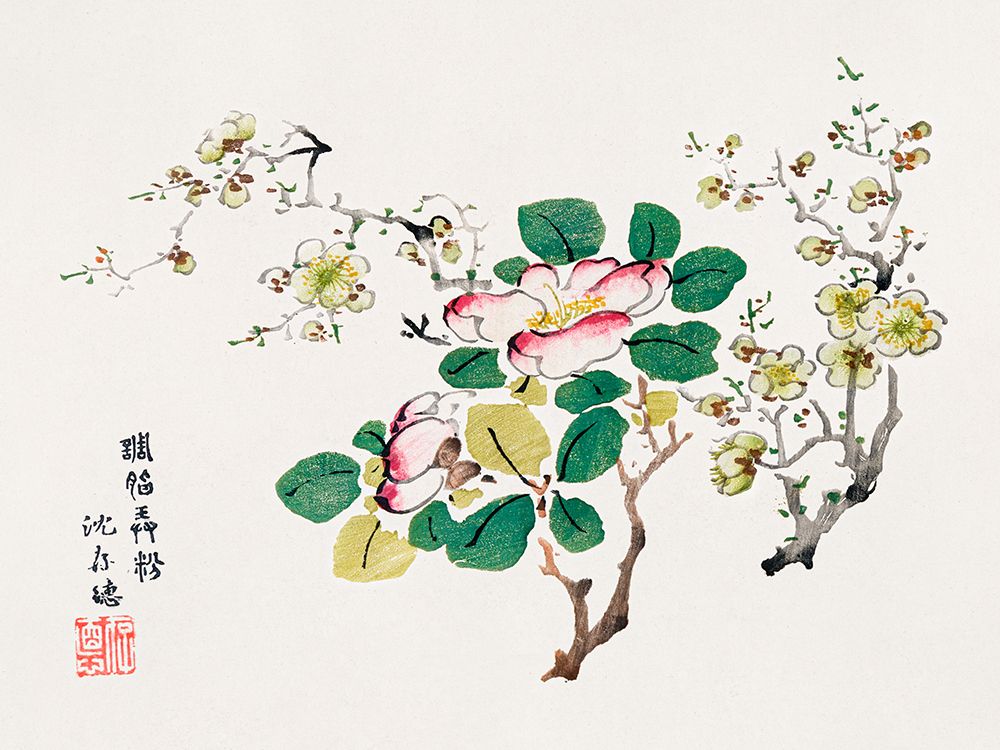 調脂弄粉
沈存德